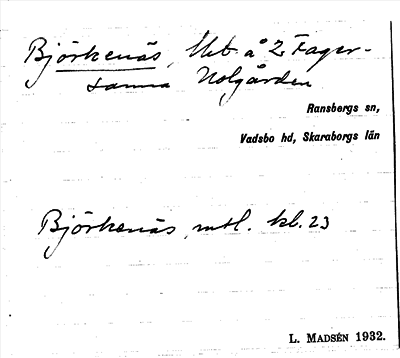 Björkenäs, Utb. å 2 Fager-
sanna Nolgården
Ransbergs sn,
Vadsbo hd, Skaraborgs län
Björkenäs, mtl. kbl. 23
L. MADSÉN 1932.